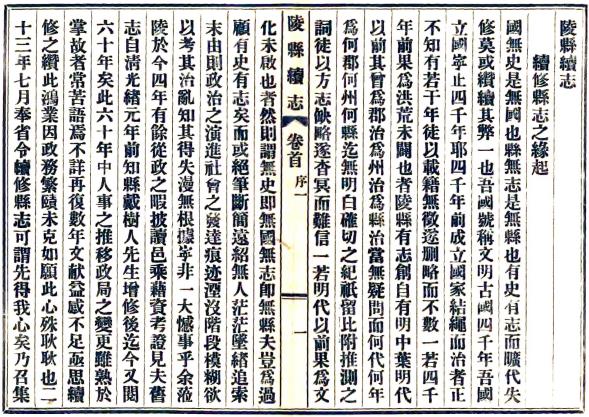 陵縣續志
續修縣志之緣起
國無史是無國也縣無志是無縣也有史有志而曠代失
修莫或纘續其弊一也吾國號稱文明古國四千年吾國
立國寧止四千年耶四千年前成立國家結繩而治者正
不知有若干年徒以載籍無徵遂刪略而不數一若四千
年前果爲洪荒未闢也者陵縣有志創自有明中葉明代
以前其曾爲郡治爲州治爲縣治當無疑問而何代何年
爲何郡何州何縣迄無明白確切之紀祇留比附推測之
詞徒以方志缺略遂杳冥而難信一若明代以前果爲文
陵縣續志
卷首
序
一
一
化未啟也者然則謂無史即無國無志卽無縣夫豈爲過
顧有史有志矣而或絕筆斷簡遠紹無人茫茫墜緒追索
末由則政治之演進社會之發達痕迹湮沒階段模糊欲
以考其治亂知其得失漫無根據寧非一大憾事乎余蒞
陵於今四年有餘從政之暇披讀邑乘藉資考證見夫舊
志自清光緒元年前知縣戴樹人先生增修後迄今又閱
六十年矣此六十年中人事之推移政局之變更雖熟於
掌故者常苦語焉不詳再復數年文献益感不足亟思續
修之纘此鴻業因政務繁賾未克如願此心殊耿耿也二
十三年七月奉省令續修縣志可謂先得我心矣乃召集